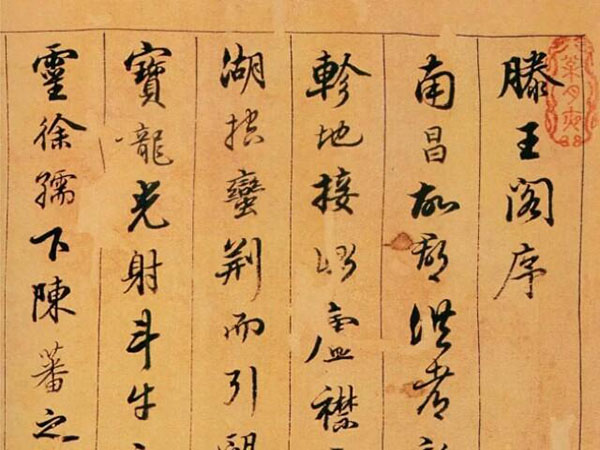 滕王閣序
南昌故郡洪都新
軫地接衡廬襟
湖控蠻荊而引甌
寶龍光射斗牛
靈徐孺下陳蕃之